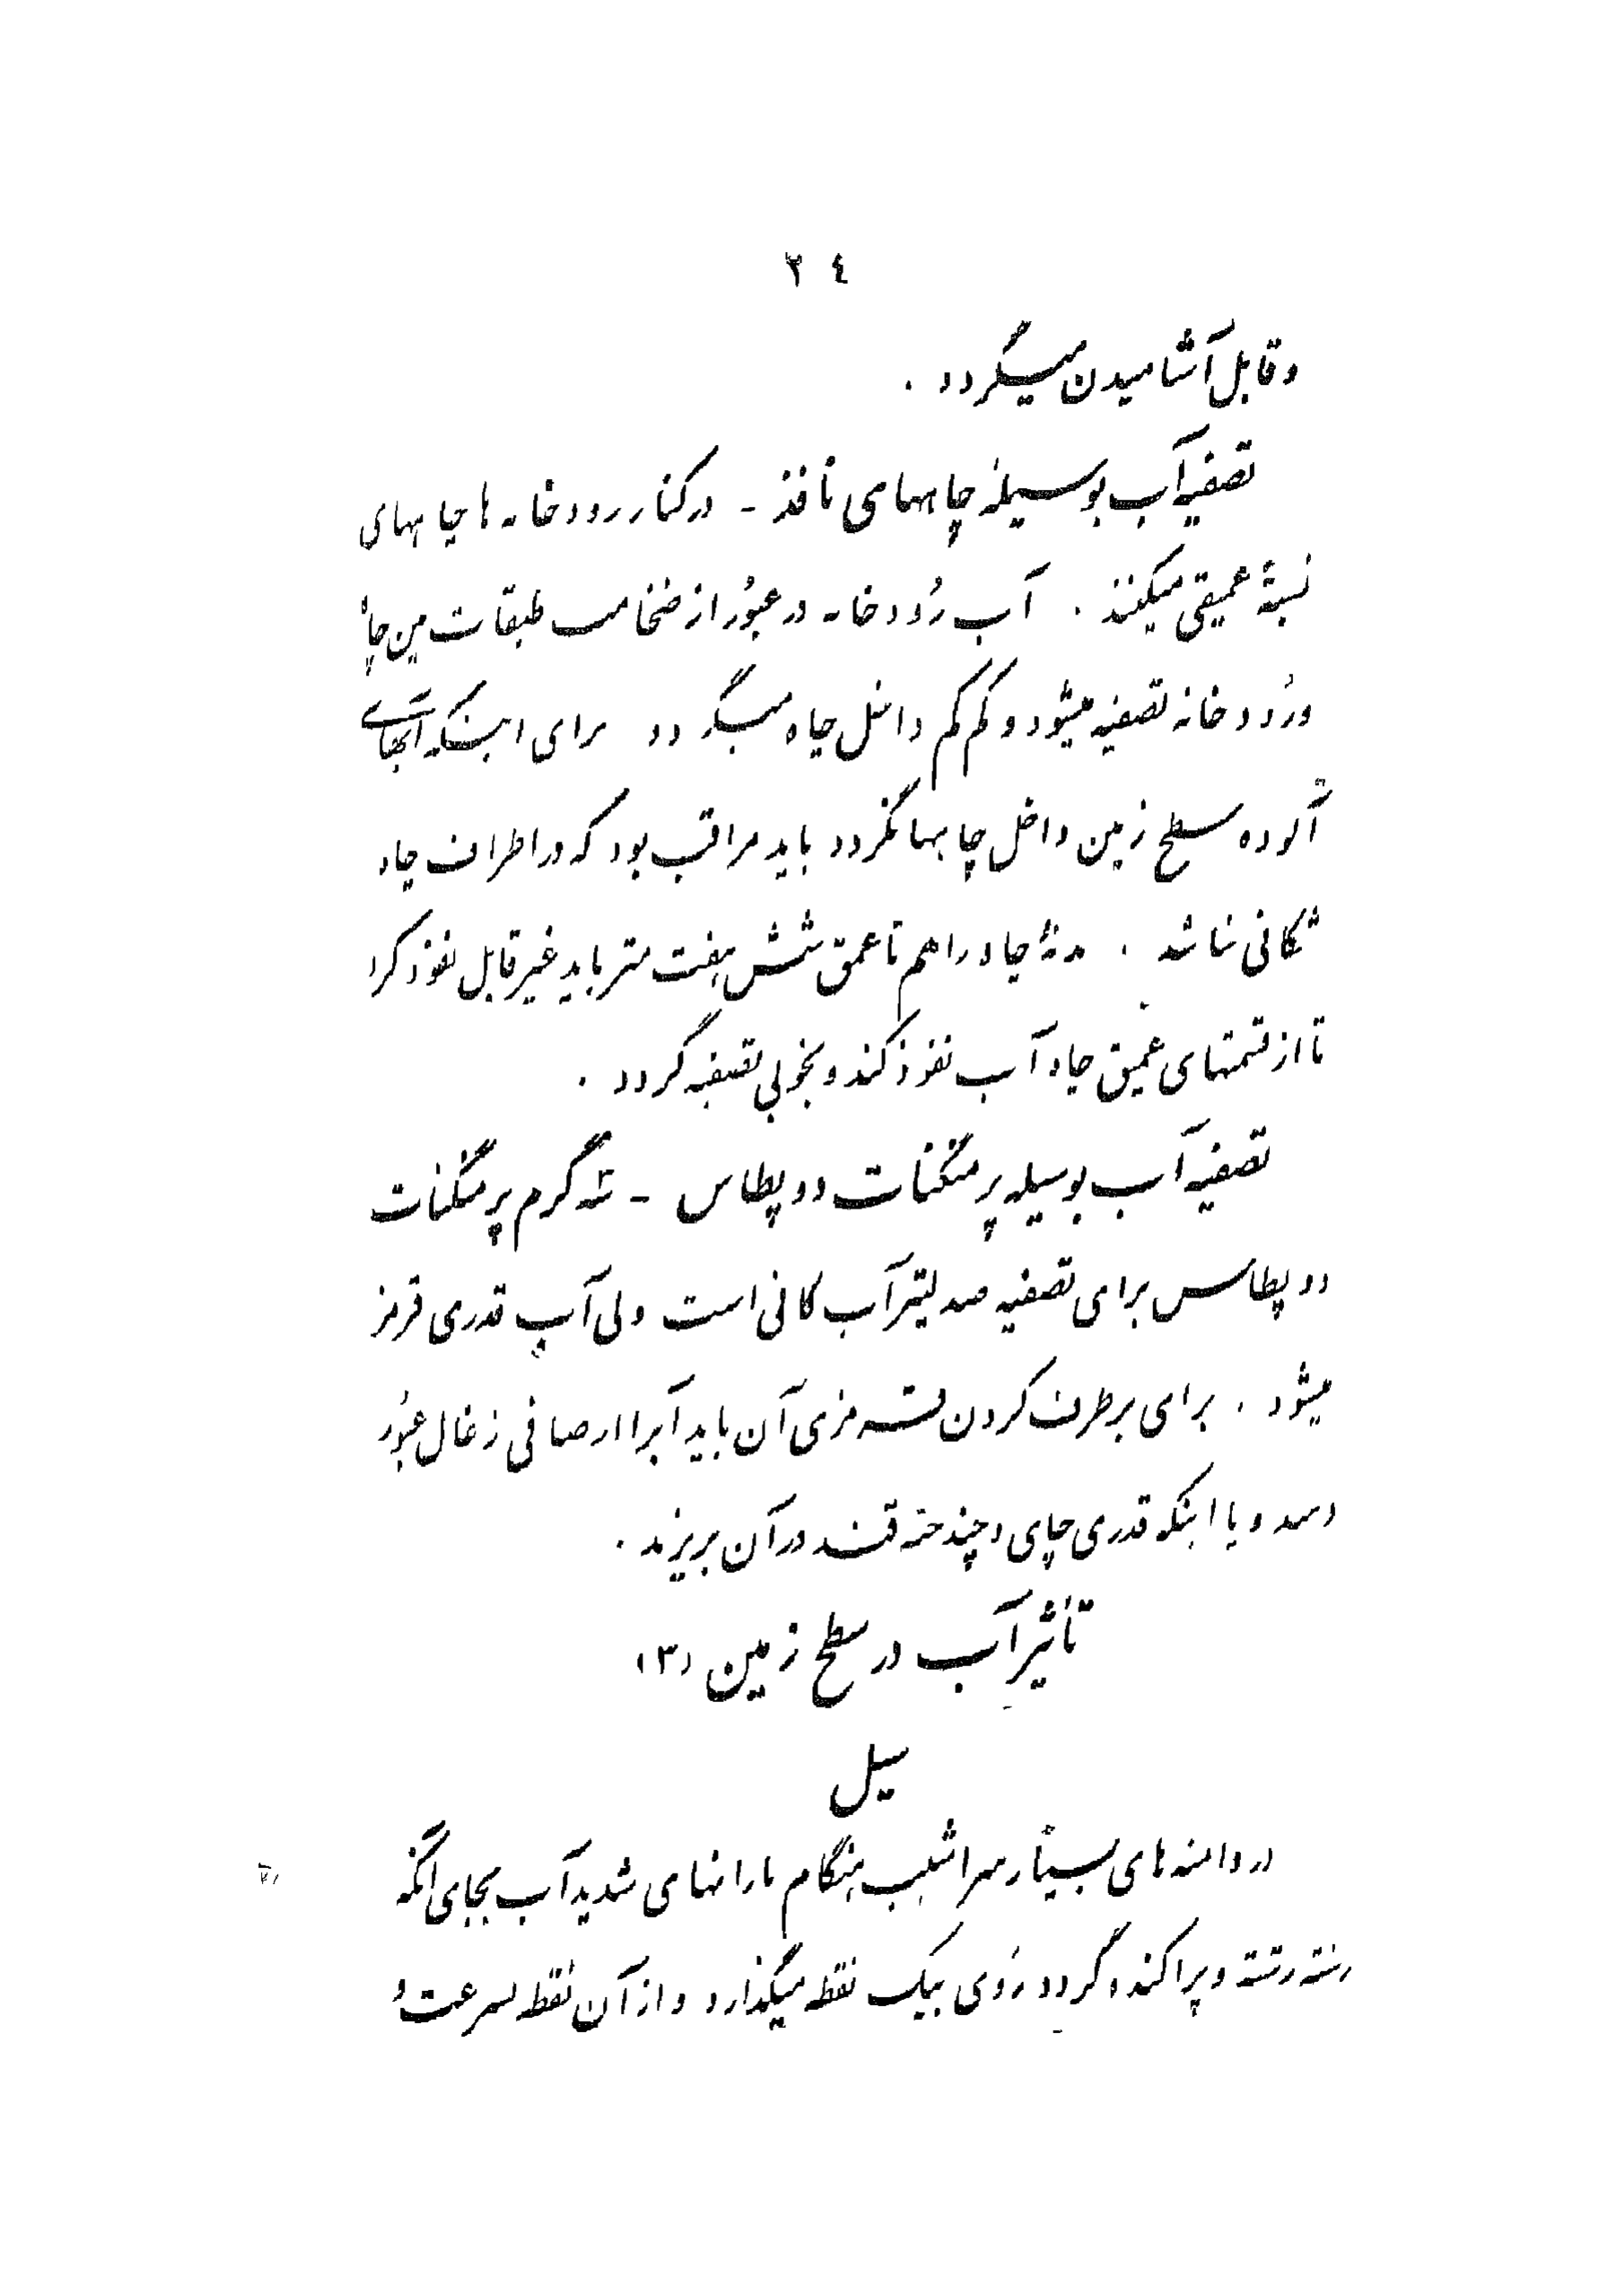 ٢٤
و قابل آشامیدن میگردد .
تصفیه آب بوسیلهٔ چاههای نافذ ـ در کنار رودخانه ها چاههای
نسبةً عمیقی میکنند . آب رودخانه در عبور از ضخامت طبقات بین چاه
و رودخانه تصفیه میشود و کم کم داخل چاه میگردد برای اینکه آبهای
آلوده سطح زمین داخل چاهها نگردد باید مراقب بود که در اطراف چاه
شکافی نباشد . بدنهٔ چاه را هم تا عمق شش هفت متر باید غیر قابل نفوذ کرد
تا از قسمتهای عمیق چاه آب نفوذ کند و بخوبی تصفیه گردد .
تصفیه آب بوسیله پرمنگنات دو پطاس ـ سه گرم پرمنگنات
دو پطاس برای تصفیه صد لیتر آب کافی است ولی آب قدری قرمز
میشود . برای برطرف کردن قرمزی آن باید آبرا از صافی زغال عبور
دهند و یا اینکه قدری چای و چند حبه قند در آن بریزند .
تأثیر آب در سطح زمین (٣)
سیل
در دامنه های بسیار سراشیب هنگام بارانهای شدید آب بجای آنکه
رشته رشته و پراکنده گردد روی بیک نقطه میگذارد و از آن نقطه بسرعت و